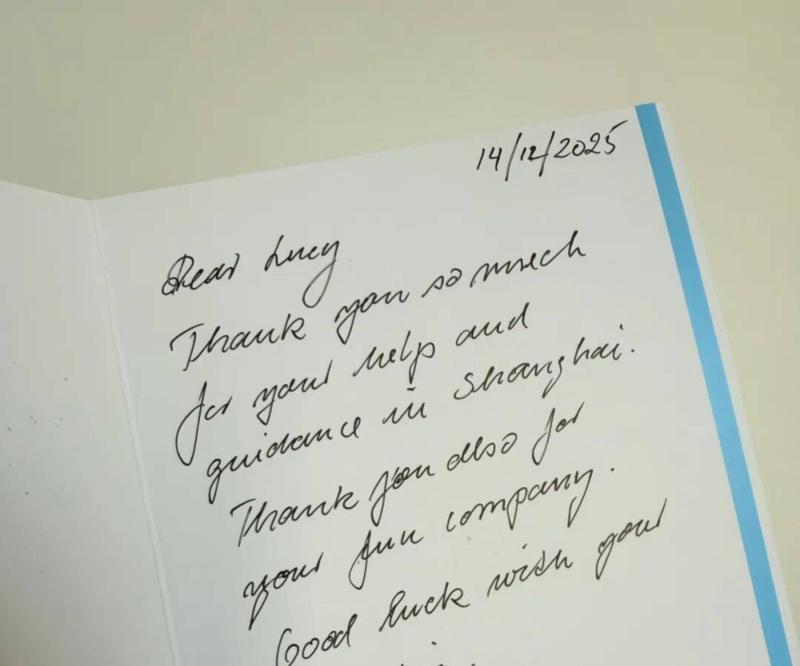 14/12/2025
Dear Lucy
Thank you so much
for your help and
guidance in Shanghai.
Thank you also for
your fun company.
Good luck with your